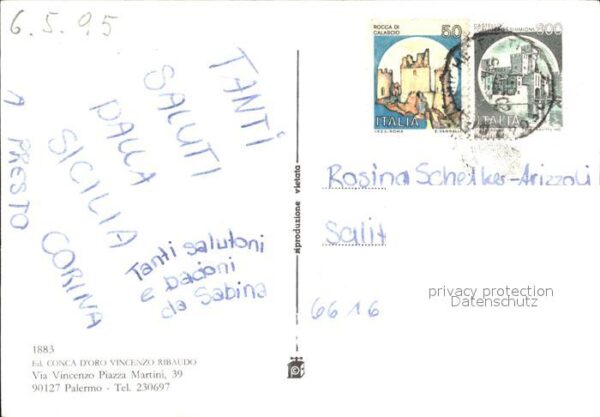 6.5.95
TANTI
SALUTI
DALLA
SICILIA
A PRESTO CORINA
Tanti salutoni
e bacioni
da Sabina
1883
Ed. CONCA D'ORO VINCENZO RIBAUDO
Via Vincenzo Piazza Martini, 39
90127 Palermo - Tel. 230697
riproduzione vietata
ROCCA DI
CALASCIO
50
ITALIA
I.P.Z.S. ROMA
CASTELLO
ITALIA
Rosina Schelker-Arizzoli
Salit
6616
privacy protection
Datenschutz